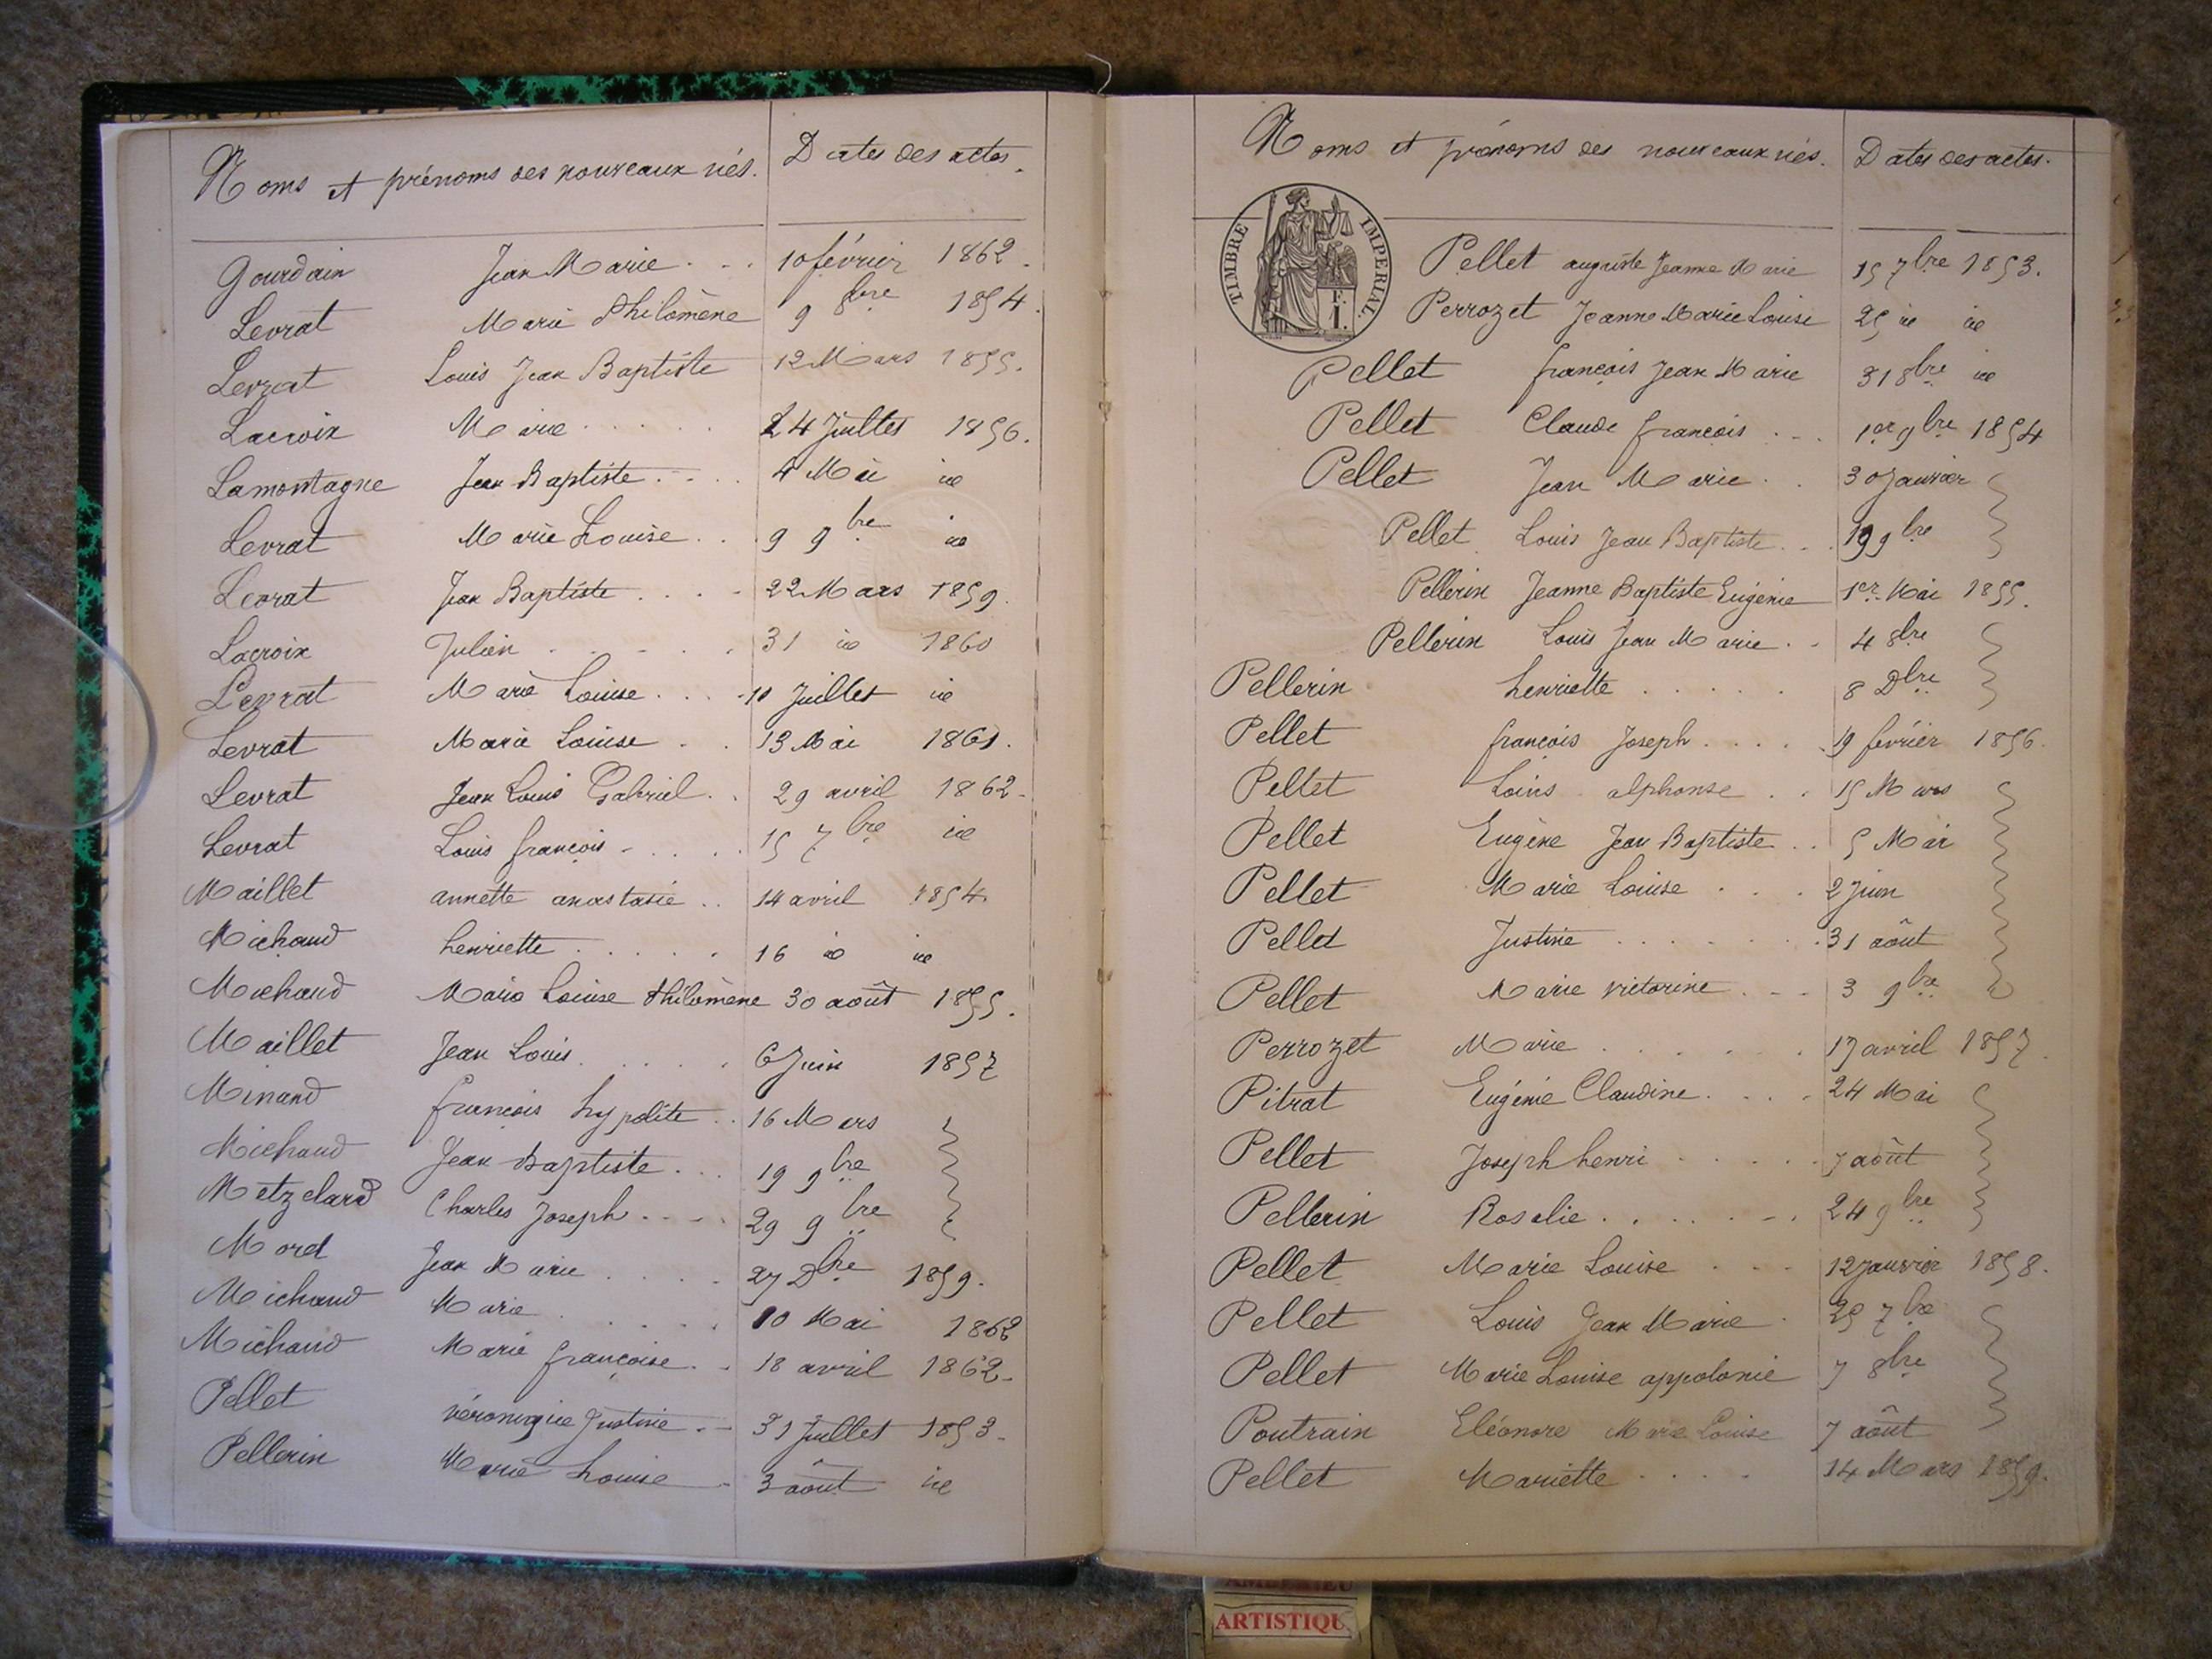 Noms et prénoms des nouveaux nés. Dates des actes.
Gourdain Jean Marie . . . 10 février 1862.
Levrat Marie Philomène 9 8bre 1854.
Levrat Louis Jean Baptiste 12 Mars 1855.
Lacroix Marie . . . . . 24 Juillet 1856.
Lamontagne Jean Baptiste . . . . 4 Mai id
Levrat Marie Louise . . . 9 9bre id
Levrat Jean Baptiste . . . . 22 Mars 1859.
Lacroix Julien . . . . . 31 id 1860
Levrat Marie Louise . . . 10 Juillet id
Levrat Marie Louise . . 13 Mai 1861.
Levrat Jean Louis Gabriel . . 29 avril 1862.
Levrat Louis françois . . . . 15 7bre id
Maillet annette anastasie . . 14 avril 1854.
Michaud henriette . . . . . 16 id id
Michaud Marie Louise Philomène 30 août 1855.
Maillet Jean Louis . . . . . 6 Juin 1857
Minand françois hypolite . . 16 Mars
Michaud Jean Baptiste . . . 19 9bre
Metzelard Charles Joseph . . . . 29 9bre
Morel Jean Marie . . . . 27 Dbre 1859.
Michaud Marie . . . . . . 10 Mai 1862
Michaud Marie françoise . . 18 avril 1862.
Pellet véronique Justine . . 31 Juillet 1853.
Pellerin Marie Louise . 3 août id
Noms et prénoms des nouveaux nés. Dates des actes.
TIMBRE IMPERIAL. F. I.
Pellet auguste Jeanne Marie 15 7bre 1853.
Perrozet Jeanne Marie Louise 25 id id
Pellet françois Jean Marie 31 8bre id
Pellet Claude françois . . . 1er 9bre 1854
Pellet Jean Marie . . 30 Janvier
Pellet Louis Jean Baptiste . . . 19 9bre
Pellerin Jeanne Baptiste Eugénie 1er Mai 1855.
Pellerin Louis Jean Marie . . 4 8bre
Pellerin henriette . . . . . . 8 Dbre
Pellet françois Joseph . . . . . 19 février 1856.
Pellet Louis alphonse . . 15 Mars
Pellet Eugène Jean Baptiste . . 5 Mai
Pellet Marie Louise . . . 2 Juin
Pellet Justine . . . . . . . 31 août
Pellet Marie victorine . . . 3 9bre
Perrozet Marie . . . . . . . 17 avril 1857.
Pitrat Eugénie Claudine . . . . 24 Mai
Pellet Joseph henri . . . . . 7 août
Pellerin Rosalie . . . . . . . 24 9bre
Pellet Marie Louise . . . 12 Janvier 1858.
Pellet Louis Jean Marie . 29 7bre
Pellet Marie Louise appolonie 7 8bre
Poutrain Eléonore Marie Louise 7 août
Pellet Mariette . . . . 14 Mars 1859.
ARTISTIQU